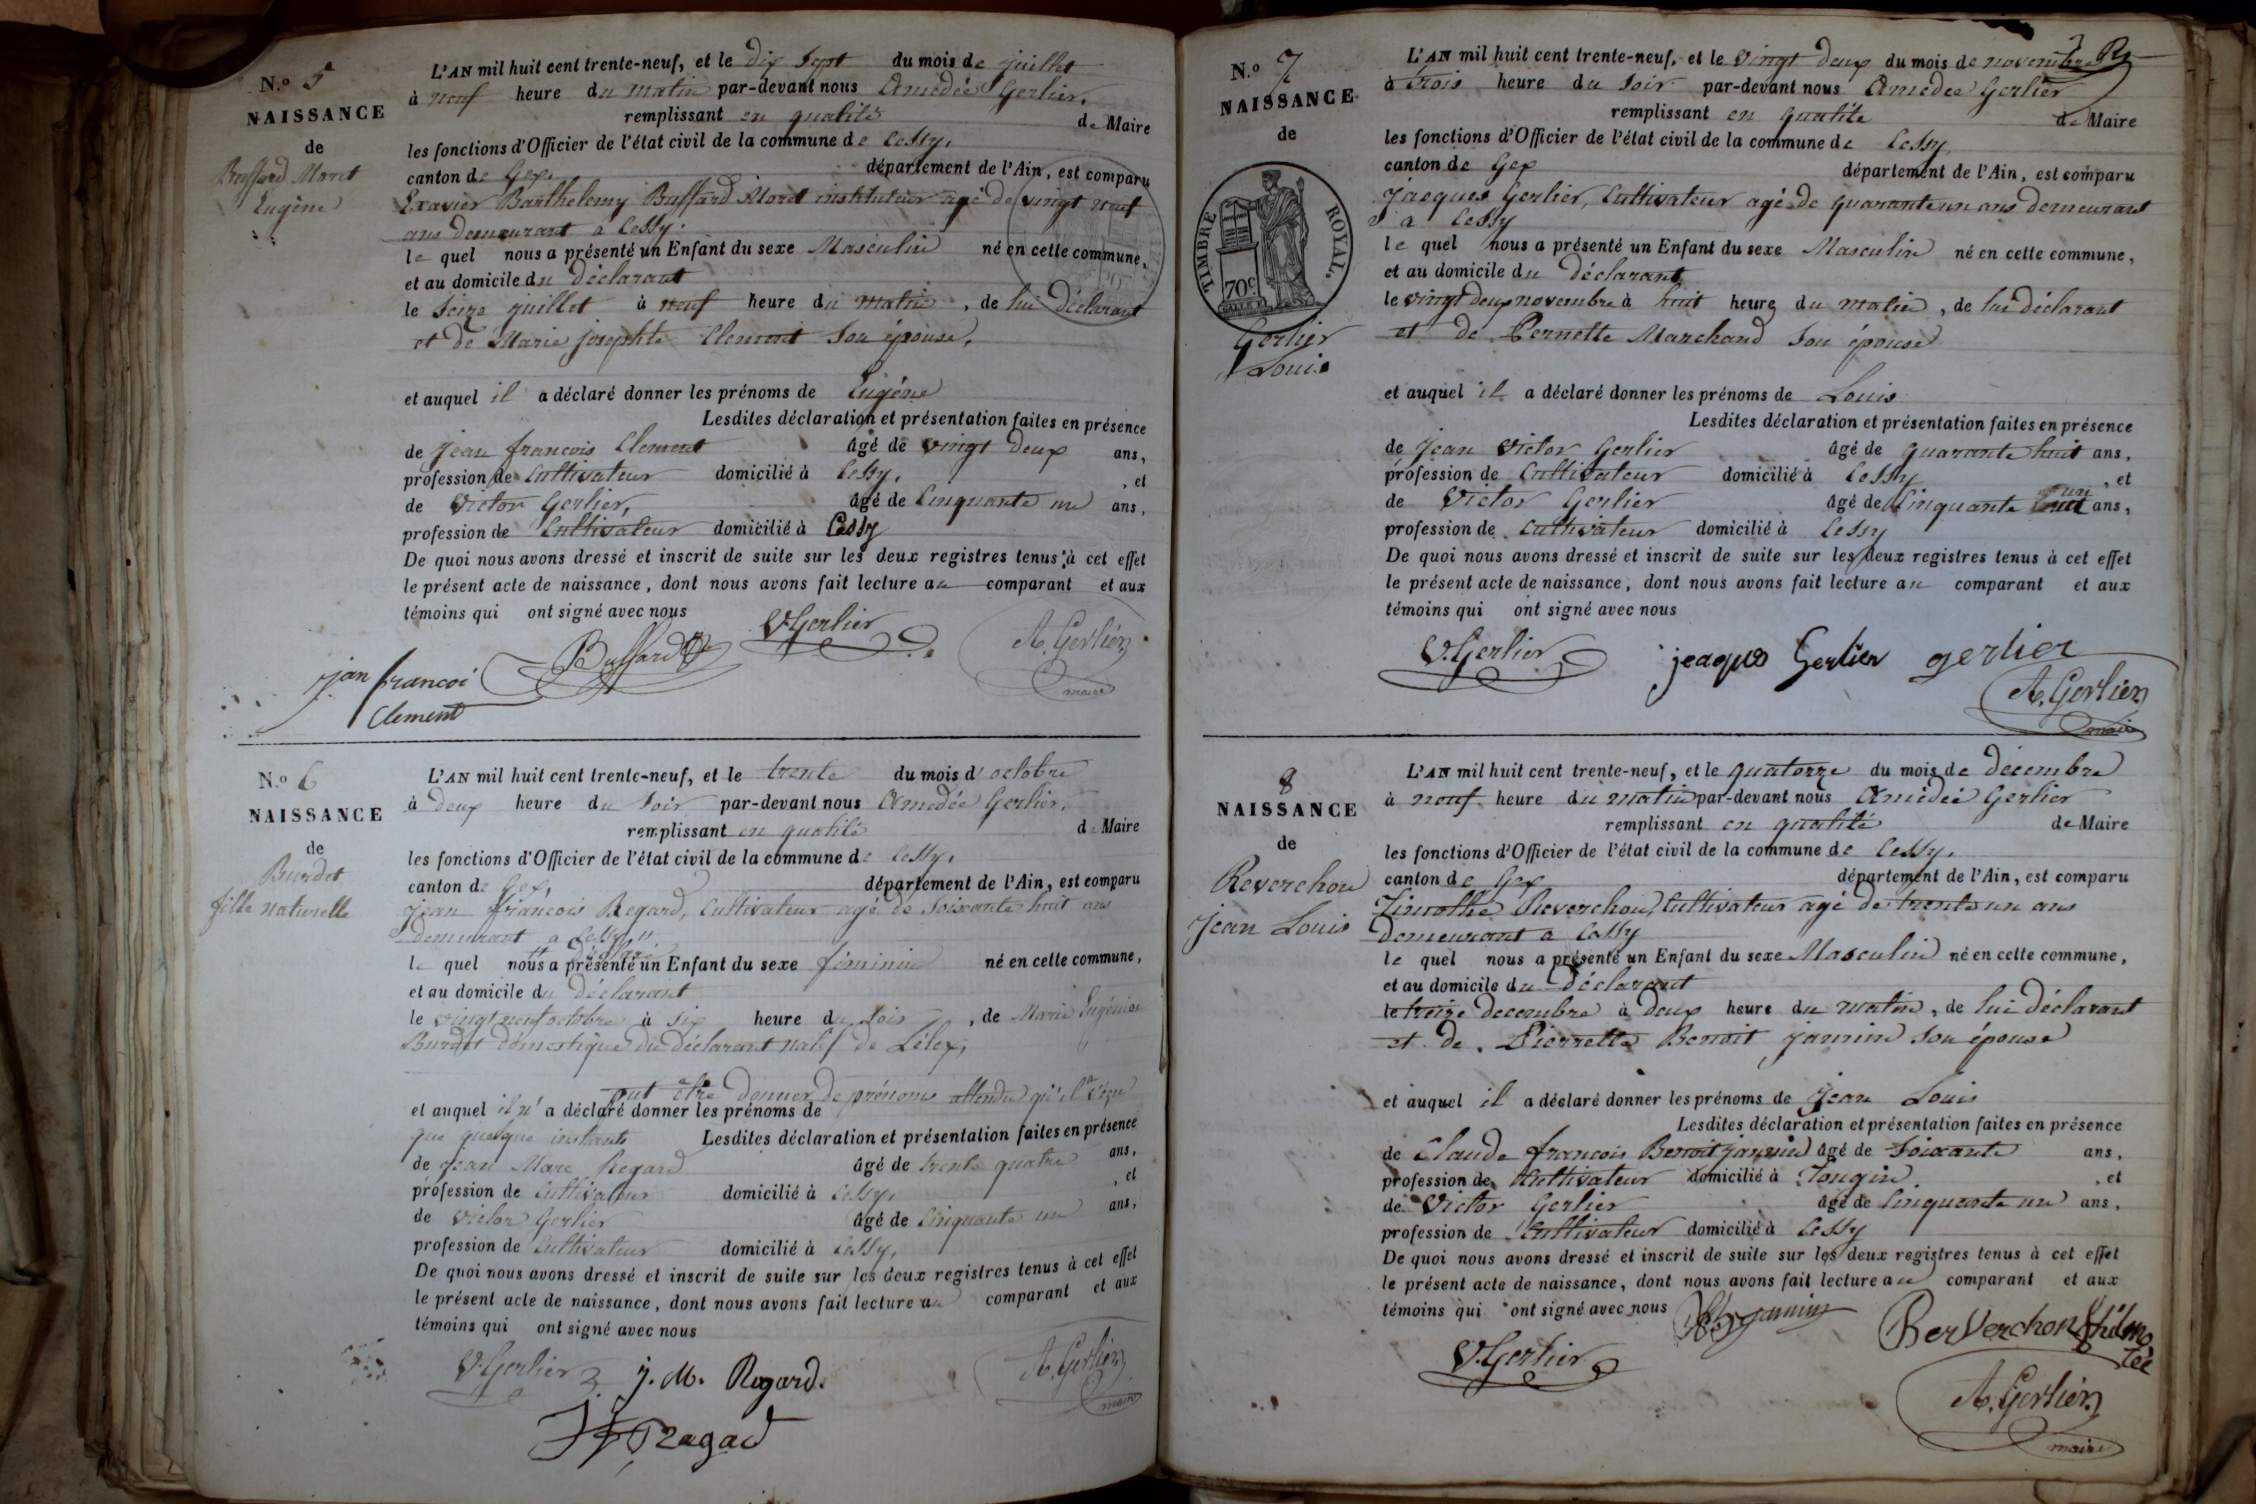 N.o 5
NAISSANCE
de
Buffard Moret
Eugène
L'AN mil huit cent trente-neuf, et le dix sept du mois de juillet
à neuf heure du matin par-devant nous Amédée Gerlier,
remplissant en qualité de Maire
les fonctions d'Officier de l'état civil de la commune de Cessy,
canton de Gex, département de l'Ain, est comparu
Exavier Barthelemy Buffard Moret instituteur agé de vingt neuf
ans demeurant a Cessy.
le quel nous a présenté un Enfant du sexe Masculin né en cette commune,
et au domicile du déclarant
le seize juillet à neuf heure du matin, de lui déclarant
et de Marie josephte Clement son épouse,
et auquel il a déclaré donner les prénoms de Eugène
Lesdites déclaration et présentation faites en présence
de jean françois Clement âgé de vingt deux ans,
profession de Cultivateur domicilié à Cessy, , et
de Victor Gerlier, âgé de Cinquante un ans,
profession de Cultivateur domicilié à Cessy
De quoi nous avons dressé et inscrit de suite sur les deux registres tenus à cet effet
le présent acte de naissance, dont nous avons fait lecture au comparant et aux
témoins qui ont signé avec nous
V. Gerlier
A. Gerlier
maire
Buffard
jan francoi
Clement
N.o 6
NAISSANCE
de
Burdet
fille naturelle
L'AN mil huit cent trente-neuf, et le trente du mois d'octobre
à deux heure du soir par-devant nous Amedée Gerlier,
remplissant en qualité de Maire
les fonctions d'Officier de l'état civil de la commune de Cessy,
canton de Gex, département de l'Ain, est comparu
jean françois Regard, Cultivateur agé de soixante huit ans
demeurant a Cessy
le quel nous a présenté un Enfant du sexe féminin né en cette commune,
et au domicile du déclarant
le vingt neuf octobre à six heure du soir, de Marie Eugénie
Burdet domestique du déclarant natif de Lélex,
put être donner de prénoms attendu qu'il n'a véqu
et auquel il n'a déclaré donner les prénoms de
que quelque instants Lesdites déclaration et présentation faites en présence
de jean Marc Regard âgé de trente quatre ans,
profession de Cultivateur domicilié à Cessy, , et
de Victor Gerlier âgé de Cinquante un ans,
profession de Cultivateur domicilié à Cessy,
De quoi nous avons dressé et inscrit de suite sur les deux registres tenus à cet effet
le présent acte de naissance, dont nous avons fait lecture au comparant et aux
témoins qui ont signé avec nous
V. Gerlier j. M. Regard.
A. Gerlier
maire
Ragad
N.o 7
NAISSANCE
de
TIMBRE ROYAL.
70c
Gerlier
Louis
L'AN mil huit cent trente-neuf, et le vingt deux du mois de novembre
à trois heure du soir par-devant nous Amedée Gerlier
remplissant en qualité de Maire
les fonctions d'Officier de l'état civil de la commune de Cessy,
canton de Gex département de l'Ain, est comparu
jacques Gerlier, Cultivateur agé de quarante un ans demeurant
a Cessy
le quel nous a présenté un Enfant du sexe Masculin né en cette commune,
et au domicile du déclarant
le vingt deux novembre à huit heure du matin, de lui déclarant
et de Pernette Marchand son épouse
et auquel il a déclaré donner les prénoms de Louis
Lesdites déclaration et présentation faites en présence
de jean Victor Gerlier âgé de quarante huit ans,
profession de Cultivateur domicilié à Cessy , et
de Victor Gerlier âgé de Cinquante un ans,
profession de Cultivateur domicilié à Cessy
De quoi nous avons dressé et inscrit de suite sur les deux registres tenus à cet effet
le présent acte de naissance, dont nous avons fait lecture au comparant et aux
témoins qui ont signé avec nous
V. Gerlier jeaques Gerlier gerlier
A. Gerlier
maire
8
NAISSANCE
de
Reverchon
jean Louis
L'AN mil huit cent trente-neuf, et le quatorze du mois de décembre
à neuf heure du matin par-devant nous Amédée Gerlier
remplissant en qualité de Maire
les fonctions d'Officier de l'état civil de la commune de Cessy,
canton de Gex département de l'Ain, est comparu
Timothé Reverchon, Cultivateur agé de trente un ans
demeurant a Cessy
le quel nous a présenté un Enfant du sexe Masculin né en cette commune,
et au domicile du déclarant
le treize decembre à deux heure du matin, de lui déclarant
et de Pierrette Benoit jannin son épouse
et auquel il a déclaré donner les prénoms de jean Louis
Lesdites déclaration et présentation faites en présence
de Claude francois Benoit jannin âgé de soixante ans,
profession de Cultivateur domicilié à Tougin , et
de Victor Gerlier âgé de Cinquante un ans,
profession de Cultivateur domicilié à Cessy
De quoi nous avons dressé et inscrit de suite sur les deux registres tenus à cet effet
le présent acte de naissance, dont nous avons fait lecture au comparant et aux
témoins qui ont signé avec nous
V. Gerlier
A. Gerlier
maire